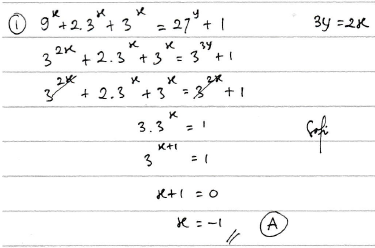 ① 9^x + 2.3^x + 3^x = 27^y + 1 3y = 2x
3^2x + 2.3^x + 3^x = 3^3y + 1
3^2x + 2.3^x + 3^x = 3^2x + 1
3.3^x = 1
3^x+1 = 1
x+1 = 0
x = -1 // Ⓐ